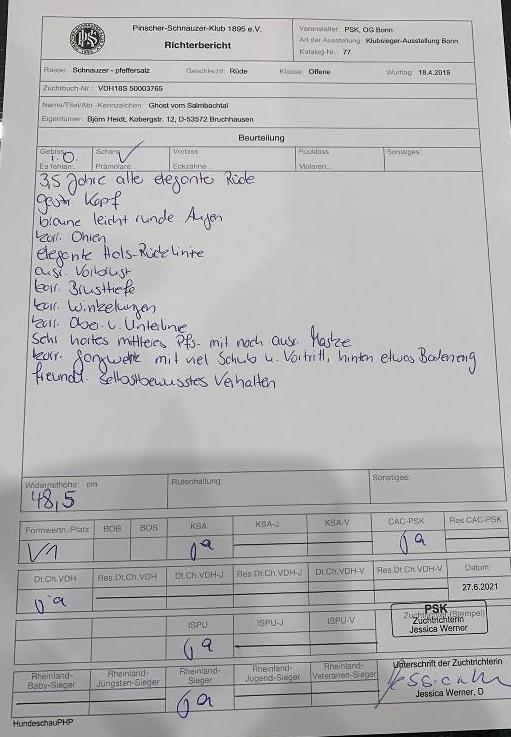 Pinscher-Schnauzer-Klub 1895 e.V.
Richterbericht
PSK
Veranstalter: PSK, OG Bonn
Art der Ausstellung: Klubsieger-Ausstellung Bonn
Katalog-Nr.: 77
Rasse: Schnauzer - pfeffersalz Geschlecht: Rüde Klasse: Offene Wurftag: 18.4.2018
Zuchtbuch-Nr.: VDH18S 50003765
Name/Titel/Abr.-Kennzeichen: Ghost vom Salmbachtal
Eigentümer: Björn Heidt, Kobergstr. 12, D-53572 Bruchhausen
Beurteilung
Gebiss: i.O. Schere ✓ Vorbiss Rückbiss Sonstiges:
Es fehlen: Prämolare... Eckzähne... Molaren...
3,5 Jahre alte elegante Rüde
gestr. Kopf
braune leicht runde Augen
korr. Ohren
elegante Hals-Rücklinie
ausr. Vorbrust
korr. Brusttiefe
korr. Winkelungen
korr. Ober- u. Unterlinie
Sehr hartes mittleres Pfs. mit noch ausr. Maske
korr. Gangwerk mit viel Schub u. Vortritt, hinten etwas Bodeneng
freundl. selbstbewusstes Verhalten
Widerristhöhe: cm Rutenhaltung Sonstiges:
48,5
Formwertn./Platz BOB BOS KSA KSA-J KSA-V CAC-PSK Res.CAC-PSK
V1 ja ja
Dt.Ch.VDH Res.Dt.Ch.VDH Dt.Ch.VDH-J Res.Dt.Ch.VDH-J Dt.Ch.VDH-V Res.Dt.Ch.VDH-V Datum:
ja 27.6.2021
ISPU ISPU-J ISPU-V Zuchtrichter (Stempel)
ja
PSK
Zuchtrichterin
Jessica Werner
Rheinland-Baby-Sieger Rheinland-Jüngsten-Sieger Rheinland-Sieger Rheinland-Jugend-Sieger Rheinland-Veteranen-Sieger Unterschrift der Zuchtrichterin
ja
Jessica Werner, D
HundeschauPHP